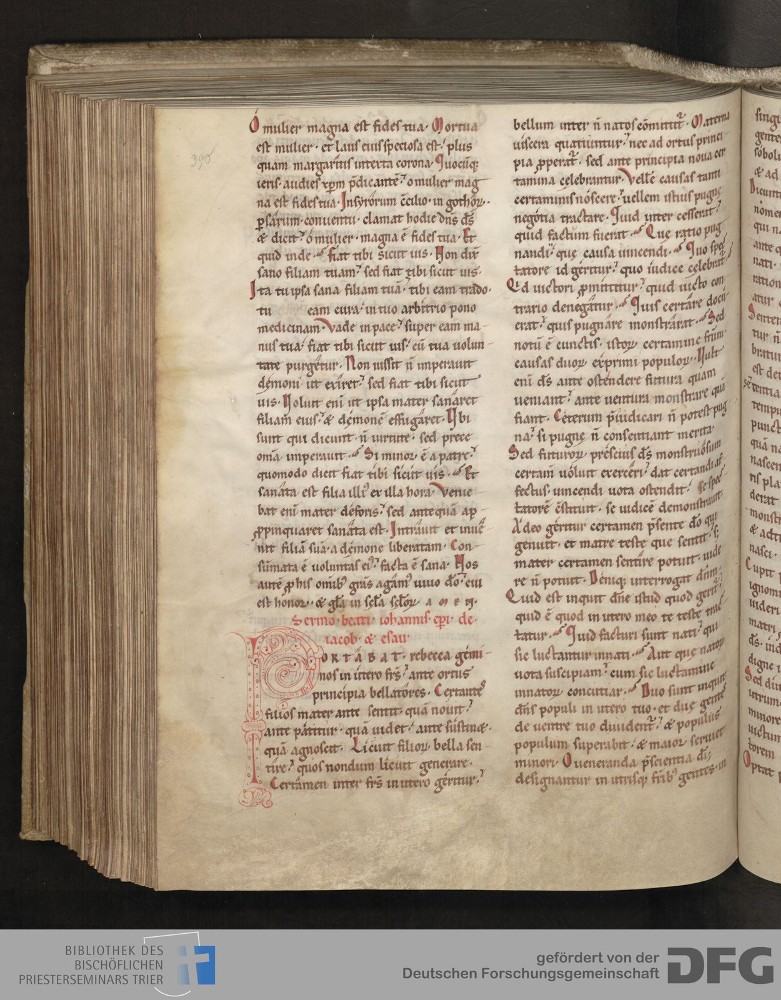 O mulier magna est fides tua. Mortua
est mulier. et laus eius speciosa est. plus
quam margaritis intexta corona. Quocūq;
ieris. audies xp̄m p̄dicantē. o mulier mag
na est fides tua.
ꝑsarum conuentu. clamat hodie dn̄s ds̄
& dicit. o mulier. magna ē fides tua. Et
quid inde. Fiat tibi sicut uis. Non dix̄
sano filiam tuam. sed fiat tibi sicut uis.
Ita tu ipsa sana filiam tuā. tibi eam trado.
tu eam cura. in tuo arbitrio pono
medicinam. Vade in pace. super eam ma
nus tua. fiat tibi sicut uis. cū tua volun
tate purgetur. Non iussit n̄ imperauit
demoni ut exiret. sed fiat tibi sicut
uis. Noluit eni ut ipsa mater sanaret
filiam eius. & demonē effugaret. Ubi
sunt qui dicunt. n̄ uirtute. sed prece
om̄a imperauit. Si minor ē a patre.
quomodo dicit fiat tibi sicut uis. Et
sanata est filia illiꝰ ex illa hora. Venie
bat eni mater deforis. sed antequā ap
ꝓpinquaret sanata est. Intrauit et inuē
nit filiā suā a demone liberatam. Con
sūmata ē voluntas eiꝰ. facta ē sana. Nos
autē ꝓ his omībꝰ grās agamꝰ uiuo dō. cui
est honor. & gl̄a in sc̄la sc̄lor̄. amen.
Sermo beati iohannis ep̄i de
iacob & esau
PORTABAT. rebecca gemi
nos in utero fr̄s. ante ortus
principia bellatores. Certantes
filios mater ante sentit. quā nouit.
ante patitur. quā uidet. ante sustinet.
quā agnoscit. Licuit filior̄. bella sen
tire. quos nondum licuit generare.
Certamen inter fr̄s in utero geritur.
bellum inter n̄ natos cōmittit̄. Materna
uiscera quatiuntur. nec ad ortus princi
pia ꝓperat̄. sed ante principia noua cer
tamina celebrantur. Vellē causas tanti
certaminis noscere. uellem istius pugne
negotia tractare. Quid inter cesserat.
quid factum fuerat. Que ratio pug
nandi. que causa uincendi. Quo spec
tatore id geritur. quo iudice celebrat̄
Qd uictori ꝓmittitur. quid uicto con
trario denegatur. Quis certare docu
erat. quis pugnare monstrarat. Sed
notū ē cunctis. istor̄ certamine fr̄um
causas duor̄ exprimi populor̄. Uult
eni ds̄ ante ostendere futura quam
ueniant. ante uentura monstrare quā
fiant. Ceterum p̄iudicari n̄ potest pug
na. si pugne n̄ consentiant merita.
Sed futuror̄ prescius ds̄ monstruosum
certam uoluit exerceri. dat certandi af
fectus. uincendi uota ostendit. Se spec
tatorē cstituit. se iudicē demonstrauit
Adeo geritur certamen p̄sente dō qui
genuit. et matre teste que sentit. Si
mater certamen sentire potuit. uide
re n̄ potuit. Deniq; interrogat dnm.
Quid est inquit dn̄e istud quod gerit̄
quid ē quod in utero meo te teste trac
tatur. Quid facturi sunt nati. qui
sic luctantur innati. Aut que nator̄
uota suscipiam. cum sic luctamine
innator̄ concutiar. Duo sunt inquit
dn̄s populi in utero tuo. et due gentes
de uentre tuo diuident̄. & populus
populum superabit. & maior seruiet
minori. O ueneranda p̄scientia dī.
designantur in utrisq; fr̄ibꝰ gentes. in
BIBLIOTHEK DES
BISCHÖFLICHEN
PRIESTERSEMINARS TRIER
gefördert von der
Deutschen Forschungsgemeinschaft
DFG